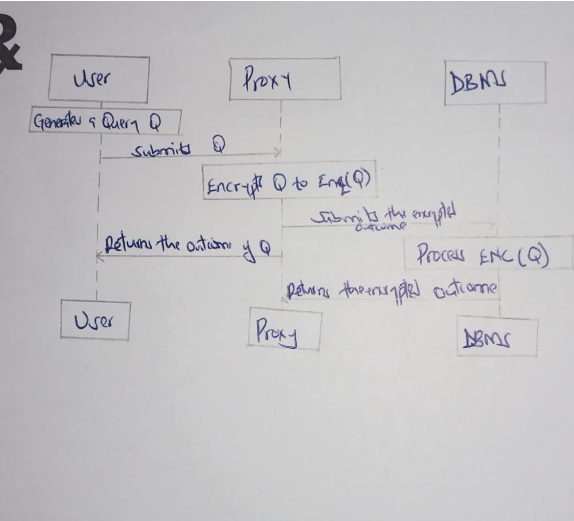 &
User
Proxy
DBMS
Generates a Query Q
Submits Q
Encrypts Q to Enq(Q)
Submits the encrypted
outcome
Returns the outcome of Q
Process ENC(Q)
Returns the encrypted outcome
User
Proxy
DBMS